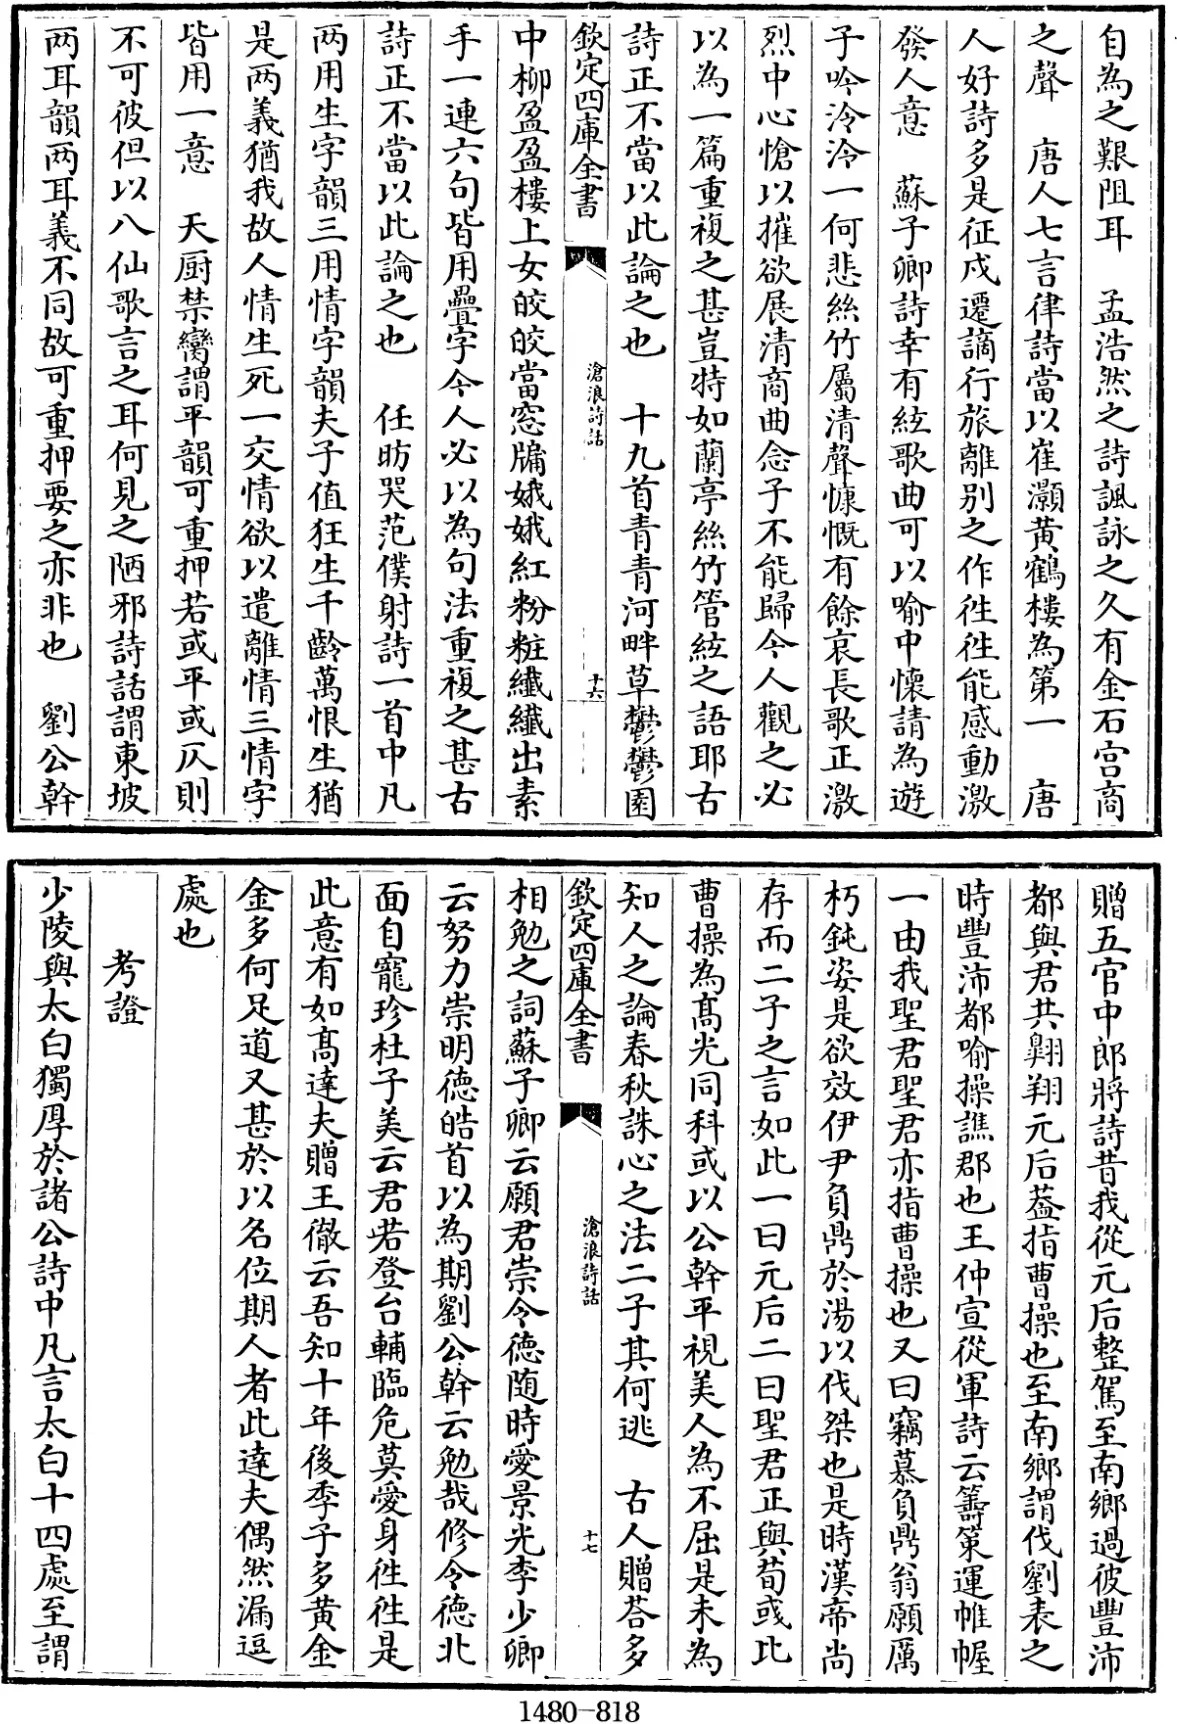 自為之艱阻耳　孟浩然之詩諷詠之久有金石宫商
之聲　唐人七言律詩當以崔灝黄鶴樓為第一　唐
人好詩多是征戍遷謫行旅離别之作徃徃能感動激
發人意　蘇子卿詩幸有絃歌曲可以喻中懷請為遊
子吟泠泠一何悲絲竹厲清聲慷慨有餘哀長歌正激
烈中心愴以摧欲展清商曲念子不能歸今人觀之必
以為一篇重複之甚豈特如蘭亭絲竹管絃之語耶古
詩正不當以此論之也　十九首青青河畔草鬱鬱園
欽定四庫全書
滄浪詩話
十六
中柳盈盈樓上女皎皎當窓牖娥娥紅粉粧纎纎出素
手一連六句皆用疊字今人必以為句法重複之甚古
詩正不當以此論之也　任昉哭范僕射詩一首中凡
两用生字韻三用情字韻夫子值狂生千齡萬恨生猶
是两義猶我故人情生死一交情欲以遣離情三情字
皆用一意　天厨禁臠謂平韻可重押若或平或仄則
不可彼但以八仙歌言之耳何見之陋邪詩話謂東坡
两耳韻两耳義不同故可重押要之亦非也　劉公幹
贈五官中郎將詩昔我從元后整駕至南鄉過彼豐沛
都與君共翺翔元后葢指曹操也至南鄉謂伐劉表之
時豐沛都喻操譙郡也王仲宣從軍詩云籌策運帷幄
一由我聖君聖君亦指曹操也又曰竊慕負鼎翁願厲
朽鈍姿是欲效伊尹負鼎於湯以伐桀也是時漢帝尚
存而二子之言如此一曰元后二曰聖君正與荀彧比
曹操為髙光同科或以公幹平視美人為不屈是未為
知人之論春秋誅心之法二子其何逃　古人贈荅多
欽定四庫全書
滄浪詩話
十七
相勉之詞蘇子卿云願君崇令德随時愛景光李少卿
云努力崇明德皓首以為期劉公幹云勉哉修令德北
面自寵珍杜子美云君若登台輔臨危莫愛身徃徃是
此意有如髙達夫贈王徹云吾知十年後季子多黄金
金多何足道又甚於以名位期人者此達夫偶然漏逗
處也
考證
少陵與太白獨厚於諸公詩中凡言太白十四處至謂
1480-818